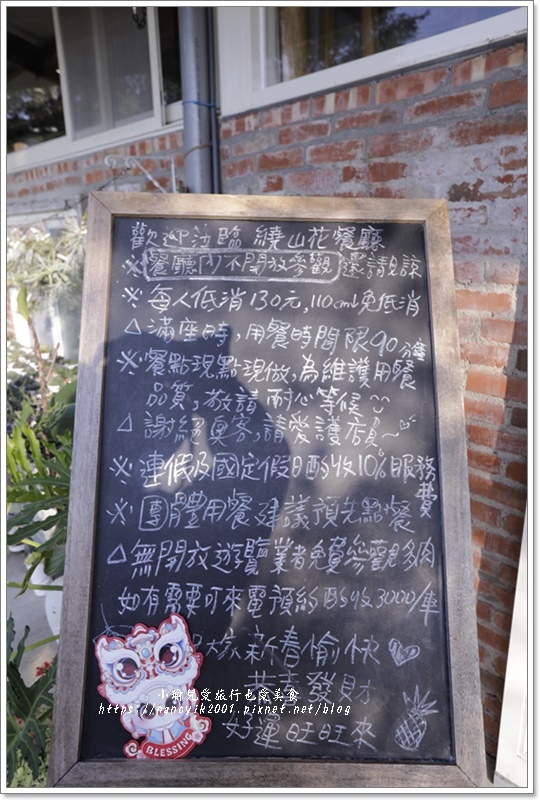 歡迎泣臨 繞山花餐廳
※餐廳內不開放參觀 還請見諒
※每人低消130元,110cm免低消
△滿座時,用餐時間限90分鐘
※餐點現點現做,為維護用餐
品質,敬請耐心等候
△謝絕奧客,請愛護店員~
※連假及國定假日酌收10%服務費
※團體用餐建議預先點餐
△無開放遊覽業者免費參觀多肉
如有需要可來電預約酌收3000/車
大家新春愉快
恭喜發財
好運旺旺來
BLESSING
小瑜兒愛旅行也愛美食
https://nancylk2001.pixnet.net/blog